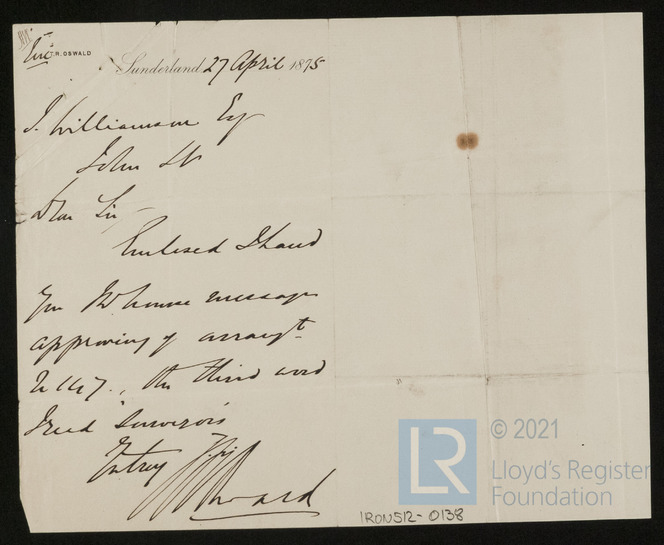 T.R. OSWALD
Sunderland 27 April 1875
J. Williamson Esq
John St
Dear Sir
Enclosed I hand
you message
approving of arrangt.
the third word
I read "Surveyors
Yrs try
Ward
IRON512-0138
LR © 2021
Lloyd's Register
Foundation